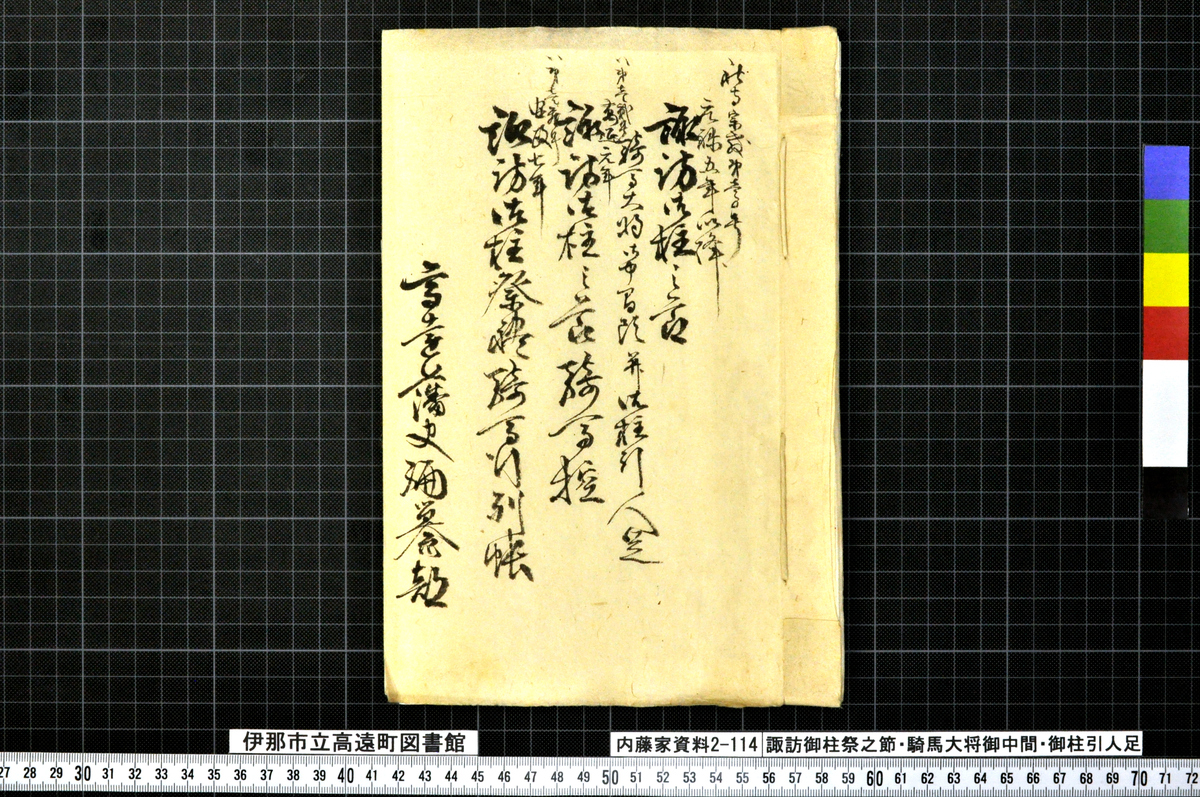 社寺宗教第壱号
元禄五年以降
諏訪御柱之節
騎馬大将御中間頭并御柱引人足
萬延元年
諏訪御柱之節騎馬控
政七年
諏訪御柱祭礼騎馬行列帳
高遠藩史編纂部
伊那市立高遠町図書館
内藤家資料2-114
諏訪御柱祭之節・騎馬大将御中間・御柱引人足
27 28 29 30 31 32 33 34 35 36 37 38 39 40 41 42 43 44 45 46 47 48 49 50 51 52 53 54 55 56 57 58 59 60 61 62 63 64 65 66 67 68 69 70 71 72